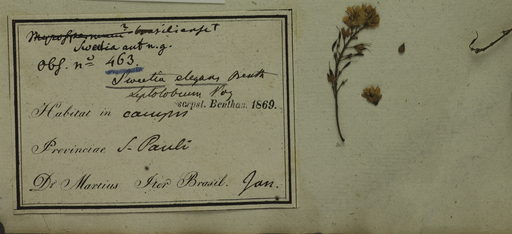 Myrospermum? brasiliense
Swetia aut n.g.
Obs. nº 463.
Sweetia elegans Benth
Leptolobium Vog
scrpst. Benthan. 1869.
Habitat in campis
Provinciae S. Pauli
Dr Martius Iter Brasil. Jan.